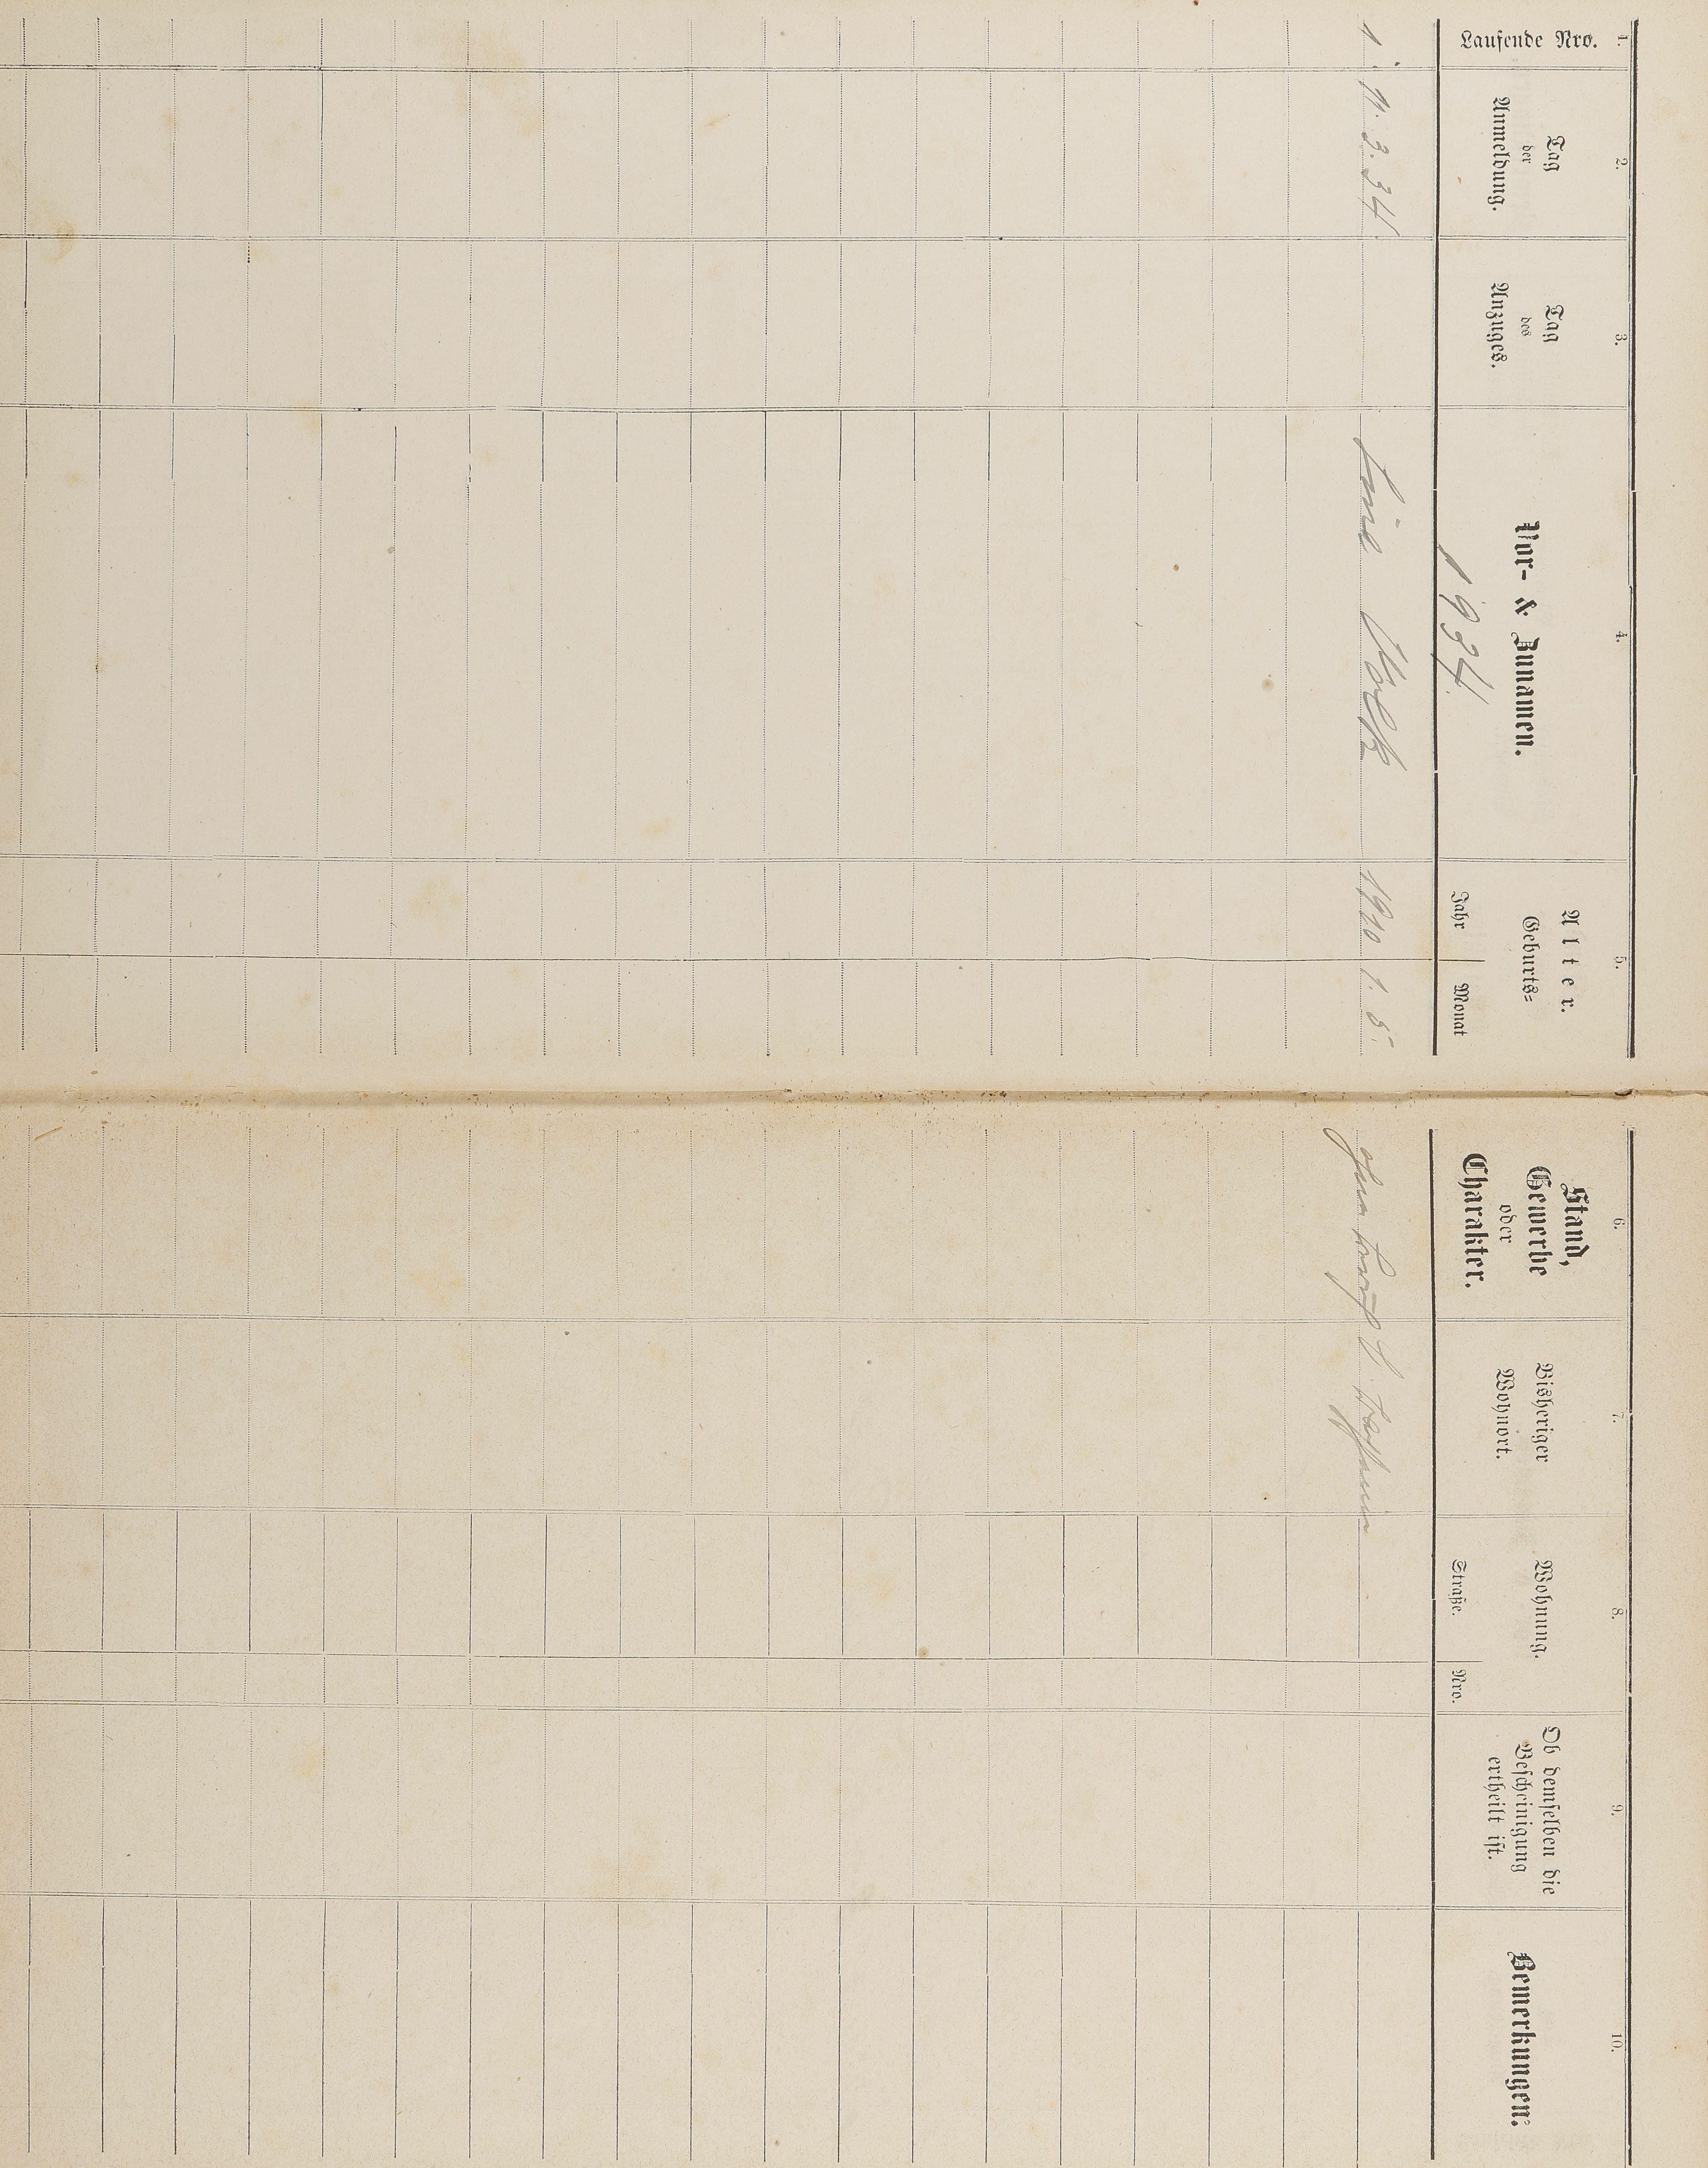 1.
Laufende Nro.
2.
Tag
der
Anmeldung.
3.
Tag
des
Anzuges.
4.
Vor- & Zunamen.
5.
Alter.
Geburts=
Jahr
Monat
6.
Stand,
Gewerbe
oder
Charakter.
7.
Bisheriger
Wohnort.
8.
Wohnung.
Straße.
Nro.
9.
Ob demselben die
Bescheinigung
ertheilt ist.
10.
Bemerkungen.
1934.
1. 11. 3. 34. 1910 1. 5. ohne